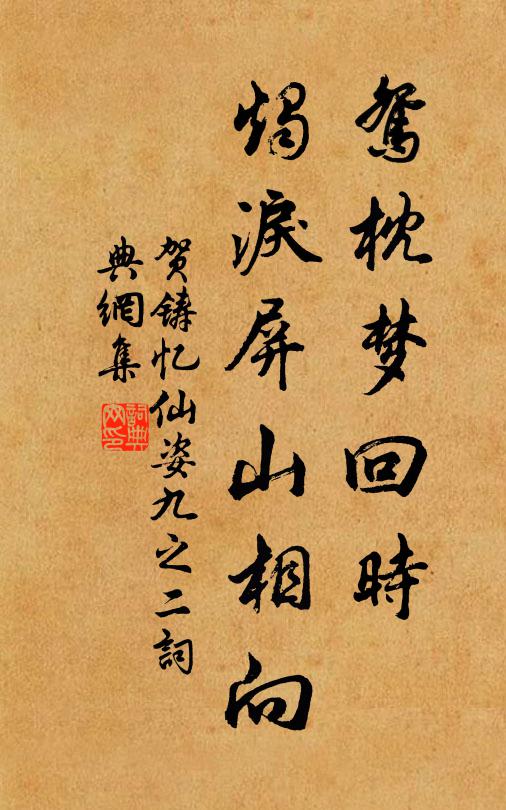 鸳枕梦回時
烛淚屏山相向
贺铸忆仙姿九之二詞
典網集
詞典
网印